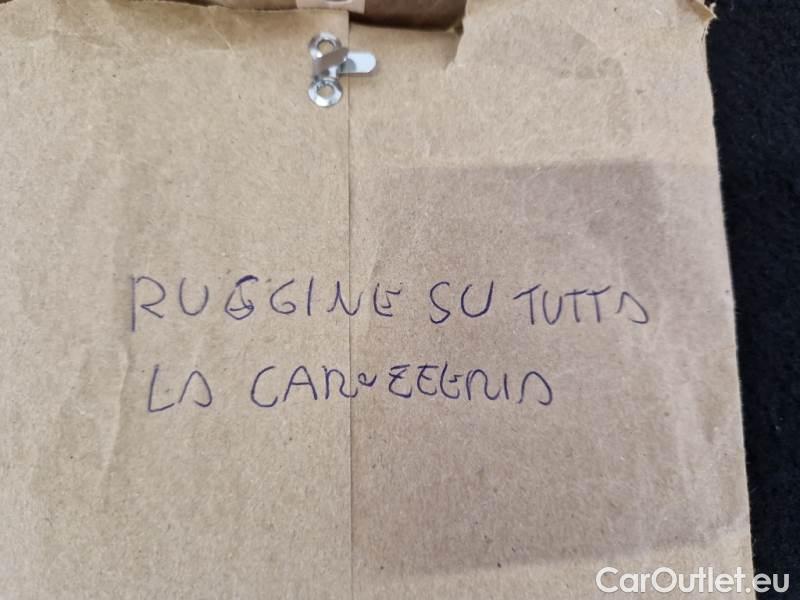 RUGGINE SU TUTTA
LA CARROZZERIA
CarOutlet.eu